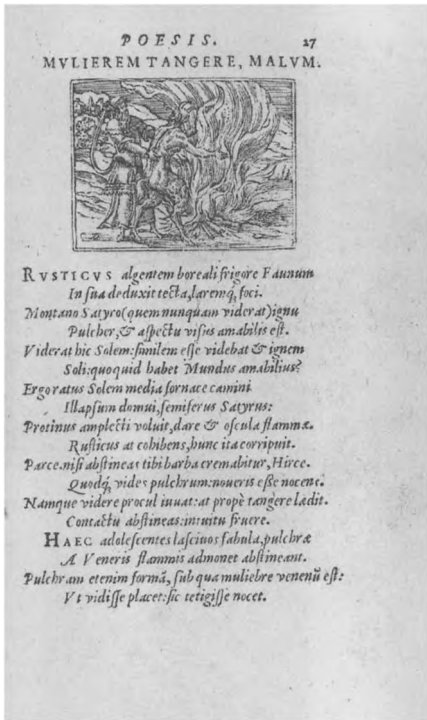 POESIS. 27
MVLIEREM TANGERE, MALVM.
RVSTICVS algentem boreali frigore Faunum
In sua deduxit tecta, laremq́, foci.
Montano Satyro (quem nunquam viderat) ignis
Pulcher, & aspectu visus amabilis est.
Viderat hic Solem: similem esse videbat & ignem
Soli: quoquid habet Mundus amabilius?
Ergo ratus Solem media fornace camini
Illapsum domui, semiferus Satyrus:
Protinus amplecti voluit, dare & oscula flammæ.
Rusticus at cohibens, hunc ita corripuit.
Parce. nisi abstineas tibi barba cremabitur, Hirce.
Quodq́, vides pulchrum: noueris esse nocens.
Namque videre procul iuuat: at propè tangere lædit.
Contactu abstineas: intuitu fruere.
HAEC adolescentes lasciuos fabula, pulchræ
A Veneris flammis admonet abstineant.
Pulchram etenim formā, sub qua muliebre venenū est:
Vt vidisse placet: sic tetigisse nocet.